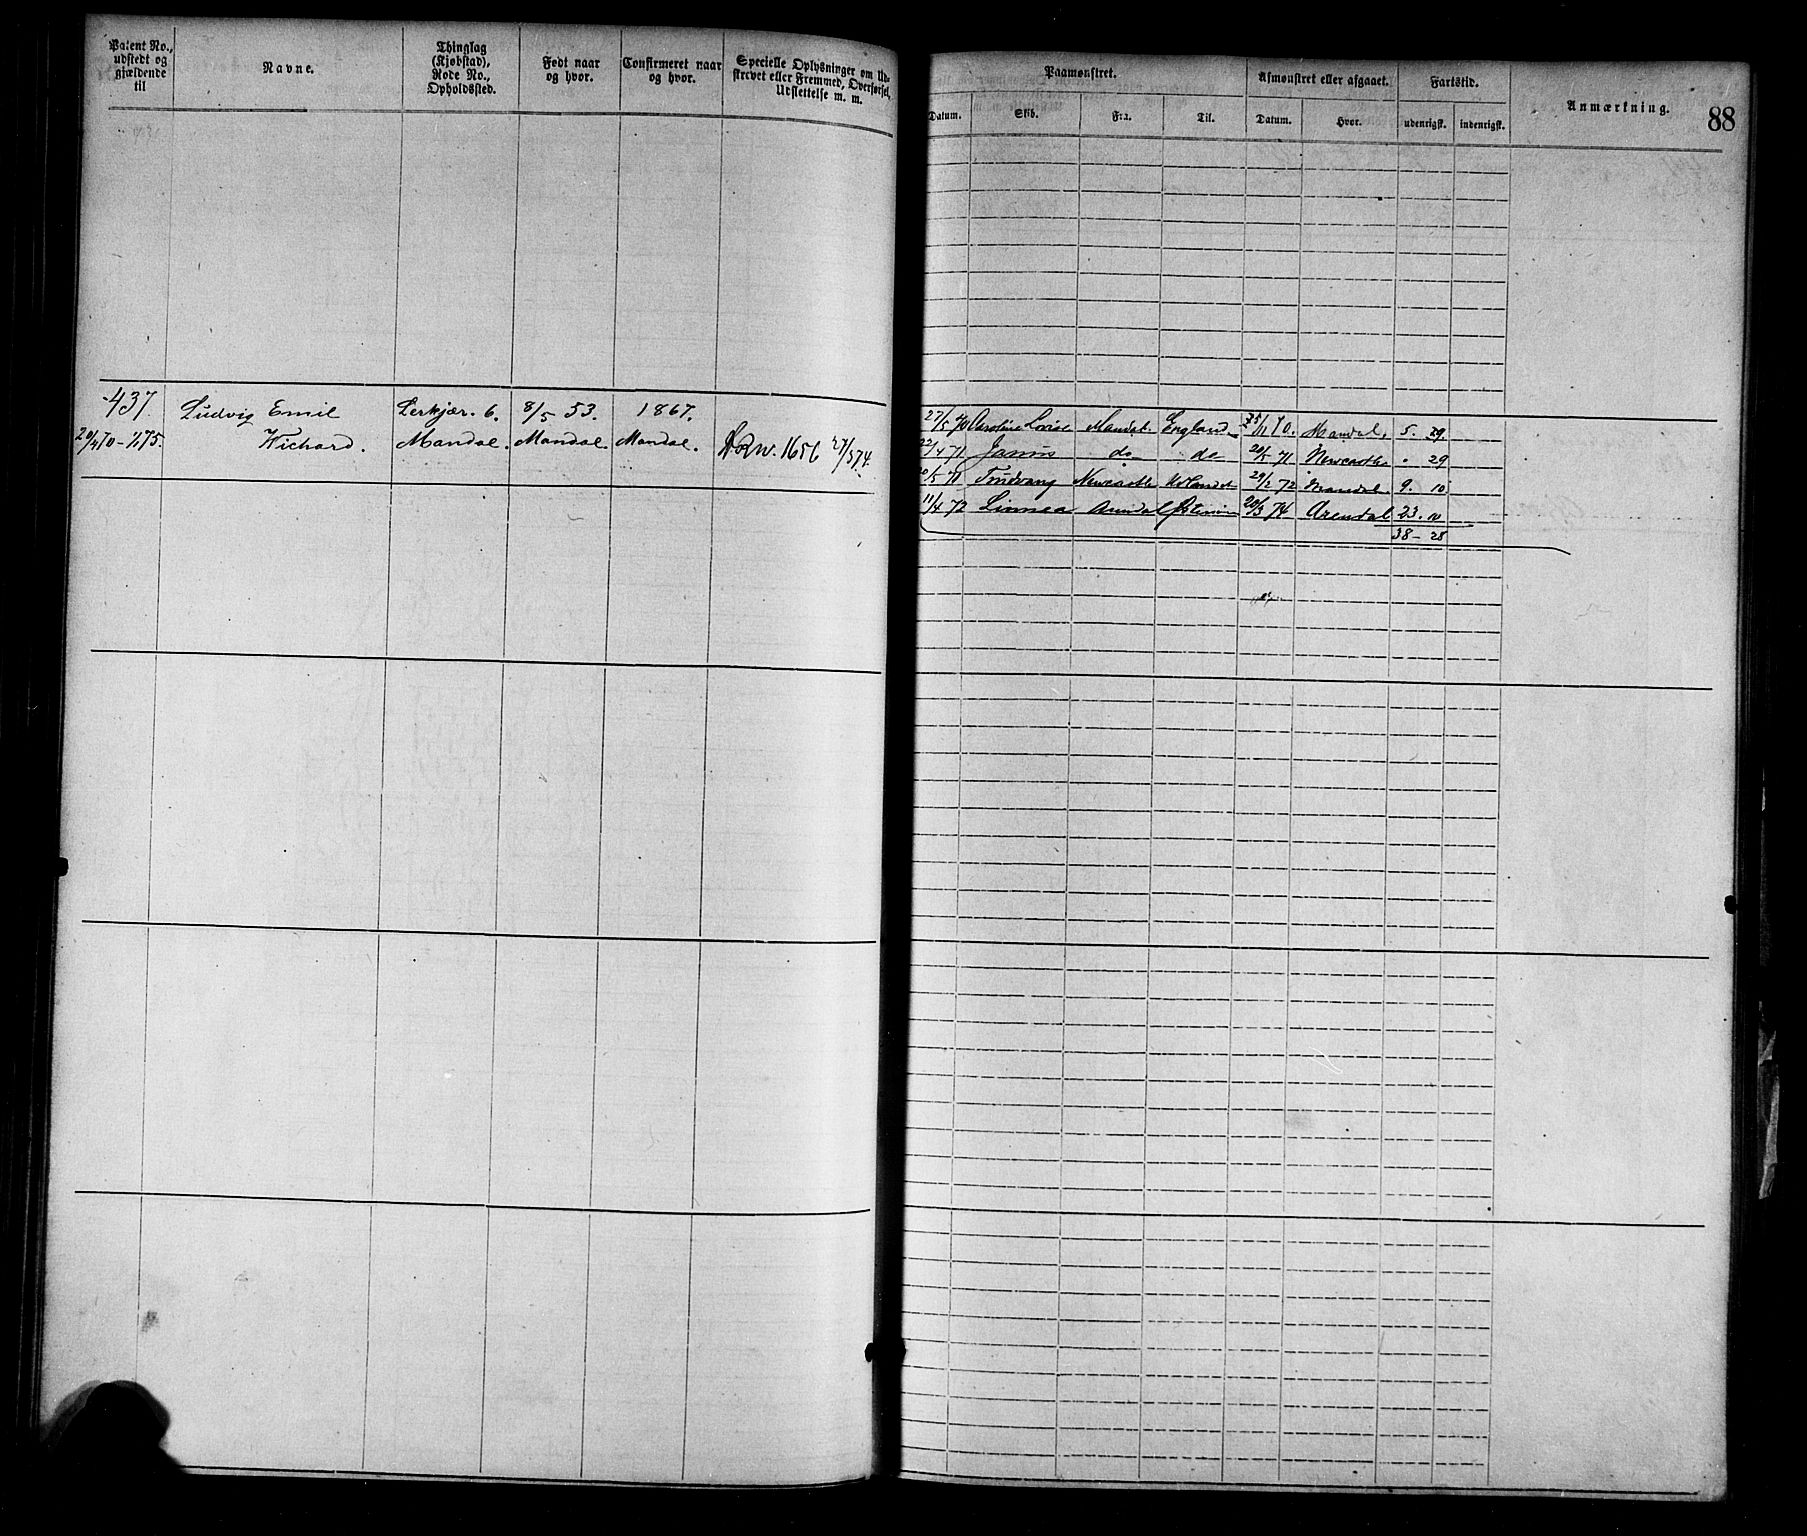 Patent No., udstedt og gjældende til
Navne.
Thinglag (Kjøbstad), Rode No., Opholdssted.
Født naar og hvor.
Confirmeret naar og hvor.
Specielle Oplysninger om Udskrevet eller Fremmed, Overførsel, Udslettelse m. m.
Paamønstret.
Afmønstret eller afgaaet.
Fartstid.
Anmærkning.
88
Datum. Skib. Fra. Til. Datum. Hvor. udenrigsk. indenrigsk.
437. Ludvig Emil Lerkjær. 6. 8/5 53. 1867.
20/4 70 - 1/1 75. Wichard. Mandal. Mandal. Mandal. 1656 27/3 74.
27/5 70 Caroline Lovise Mandal England 25/11 70. Mandal. 5. 29.
22/4 71 Janus do do 20/5 71 Newcastle " 29
20/5 71 Newcastle 29/2 72 Mandal. 9. 10.
11/4 72 Linnea Arendal 20/3 74 Arendal 23. 10
38 - 28